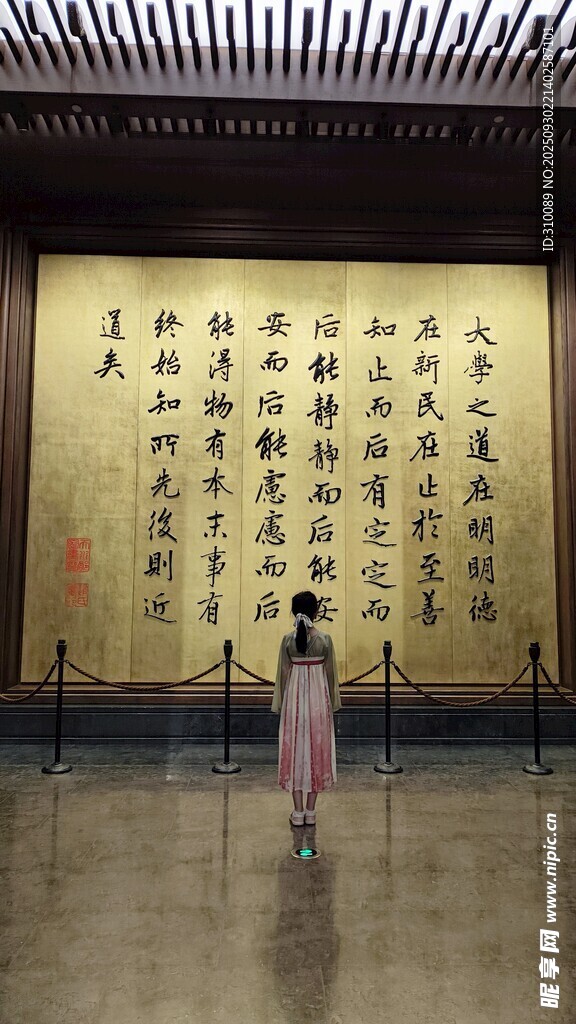 大學之道在明明德
在新民在止於至善
知止而后有定定而
后能静静而后能安
安而后能慮慮而后
能得物有本末事有
終始知所先後則近
道矣
ID:310089 NO:20250930221402587101
昵享网 www.nipic.cn